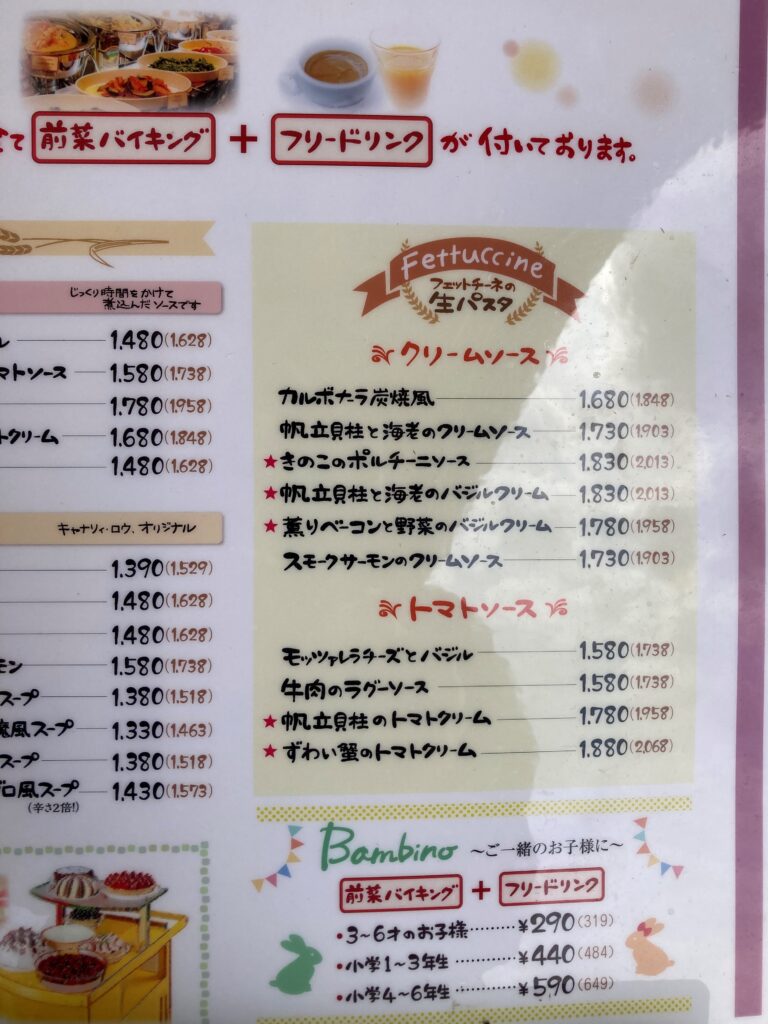 て 前菜バイキング + フリードリンク が付いております。
じっくり時間をかけて
煮込んだソースです
ル 1.480(1.628)
マトソース 1.580(1.738)
1.780(1.958)
トクリーム 1.680(1.848)
1.480(1.628)
キャナリィ・ロウ、オリジナル
1.390(1.529)
1.480(1.628)
1.480(1.628)
モン 1.580(1.738)
スープ 1.380(1.518)
風スープ 1.330(1.463)
スープ 1.380(1.518)
ロ風スープ 1.430(1.573)
(辛さ2倍!)
Fettuccine
フェットチーネの
生パスタ
クリームソース
カルボナーラ炭焼風 1.680(1.848)
帆立貝柱と海老のクリームソース 1.730(1.903)
★きのこのポルチーニソース 1.830(2,013)
★帆立貝柱と海老のバジルクリーム 1.830(2,013)
★薫りベーコンと野菜のバジルクリーム 1.780(1.958)
スモークサーモンのクリームソース 1.730(1.903)
トマトソース
モッツァレラチーズとバジル 1.580(1.738)
牛肉のラグーソース 1.580(1.738)
★帆立貝柱のトマトクリーム 1.780(1.958)
★ずわい蟹のトマトクリーム 1.880(2,068)
Bambino ～ご一緒のお子様に～
前菜バイキング + フリードリンク
・3～6才のお子様………¥290(319)
・小学1～3年生…………¥440(484)
・小学4～6年生…………¥590(649)